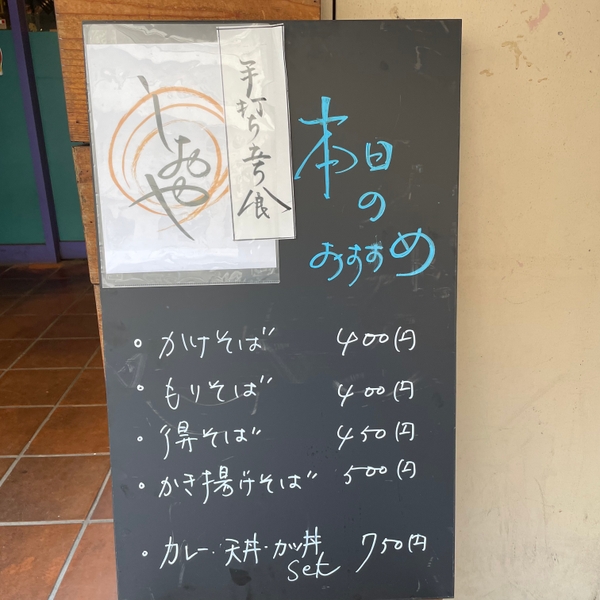 しおや
手打ち蕎食
本日
の
おすすめ
・かけそば 400円
・もりそば 400円
・得そば 450円
・かき揚げそば 500円
・カレー・天丼・カツ丼 set 750円